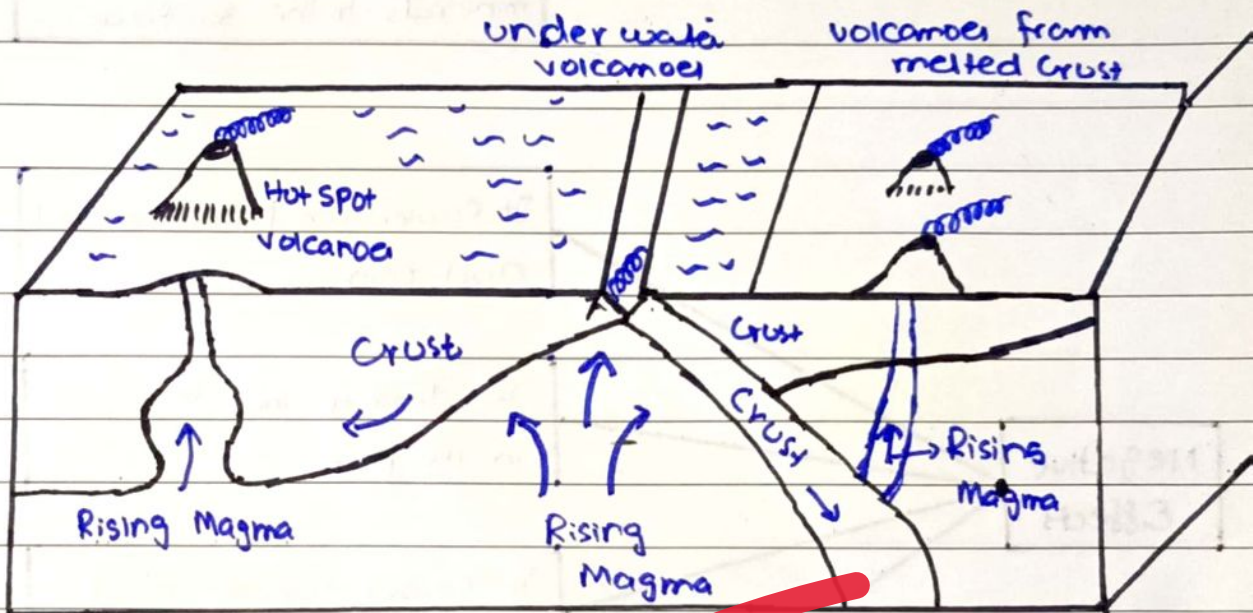 under water
volcanoes
volcanoes from
melted Crust
Hot Spot
volcanoes
Crust
Crust
Crust
Rising Magma
Rising
Magma
Rising
Magma